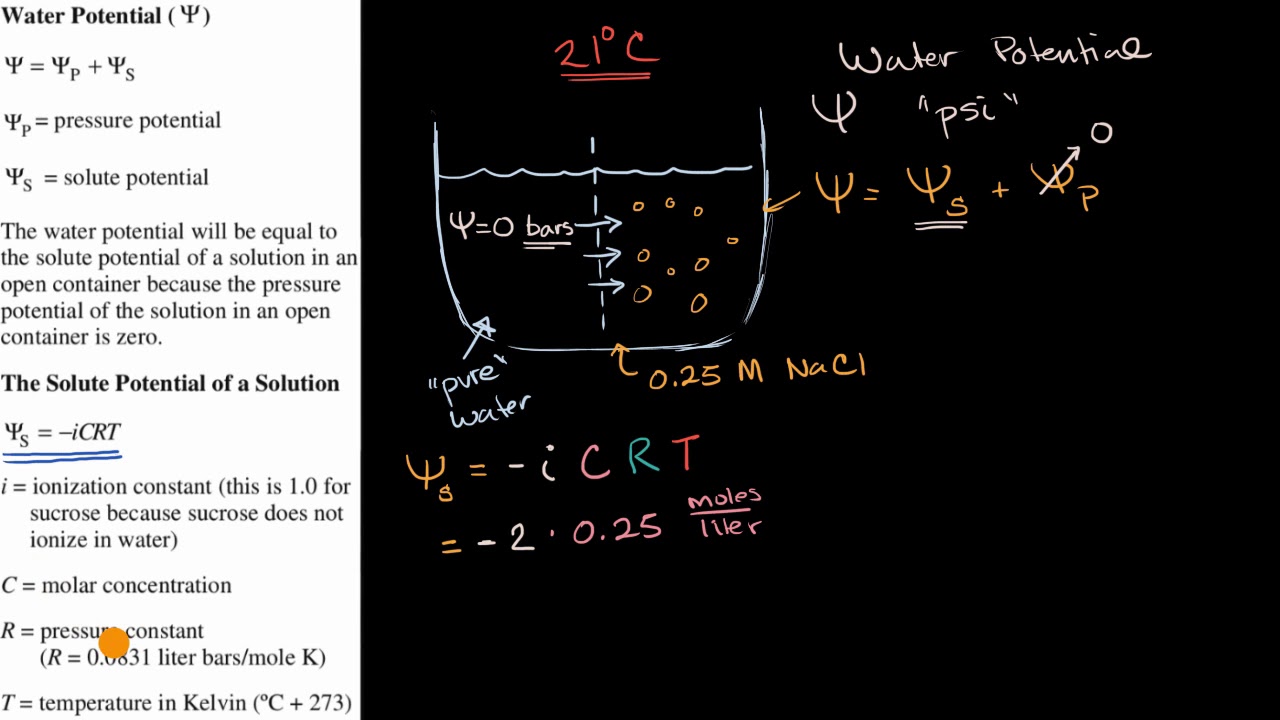 Water Potential (Ψ)
Ψ = ΨP + ΨS
ΨP = pressure potential
ΨS = solute potential
The water potential will be equal to
the solute potential of a solution in an
open container because the pressure
potential of the solution in an open
container is zero.
The Solute Potential of a Solution
ΨS = –iCRT
i = ionization constant (this is 1.0 for
sucrose because sucrose does not
ionize in water)
C = molar concentration
R = pressure constant
(R = 0.0831 liter bars/mole K)
T = temperature in Kelvin (ºC + 273)
21°C
Ψ=0 bars
"pure"
water
0.25 M NaCl
Water Potential
Ψ "psi"
Ψ = Ψs + Ψp
0
Ψs = - i C R T
= - 2 · 0.25 moles
liter